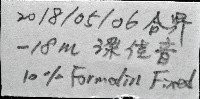 2018/05/06 合界
-18m 深佳音
10% Formalin Fixed